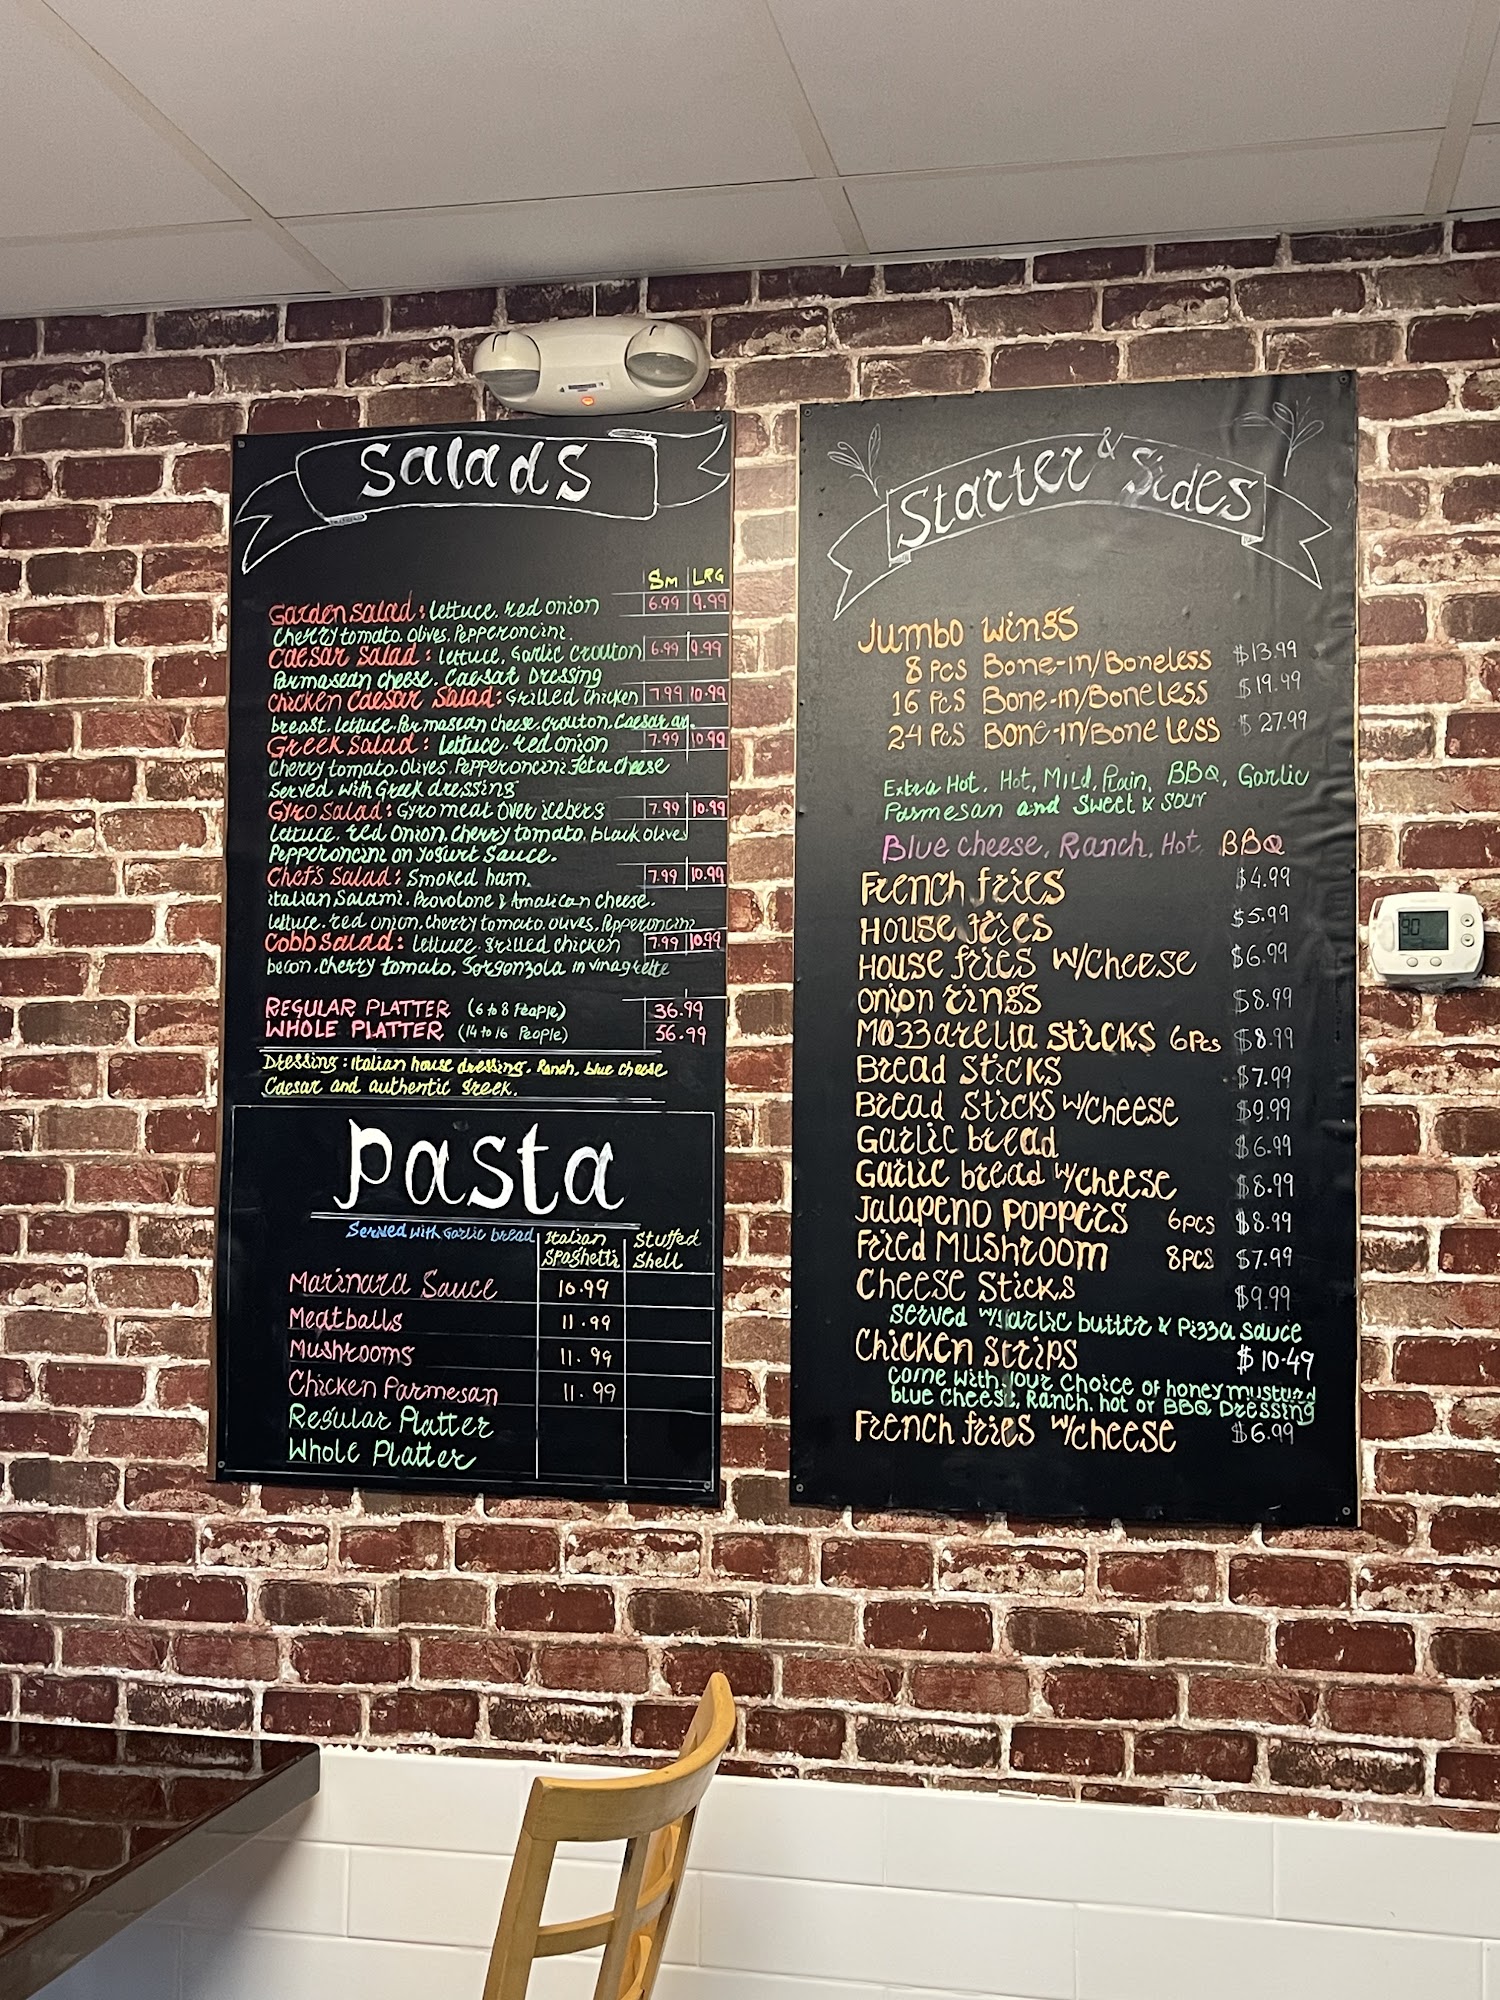 Salads
Sm LRG
Garden Salad: lettuce, red onion 6.99 9.99
Cherry tomato, olives, Pepperoncini.
Caesar Salad: lettuce, Garlic Crouton 6.99 9.99
Parmasean cheese, Caesar Dressing
Chicken Caesar Salad: Grilled Chicken 7.99 10.99
breast, lettuce, Parmasean cheese, crouton, Caesar
Greek Salad: lettuce, red onion 7.99 10.99
Cherry tomato, Olives, Pepperoncini Feta Cheese
Served with Greek dressing
Gyro Salad: Gyro meat Over icebers 7.99 10.99
lettuce, red onion, cherry tomato, black olives
Pepperoncini on Yogurt Sauce.
Chef's Salad: Smoked ham, 7.99 10.99
italian Salami, Provolone & Amalican Cheese.
lettuce, red onion, cherry tomato, olives, Pepperoncini
Cobb Salad: lettuce grilled chicken 7.99 10.99
becon, cherry tomato, Gorgonzola in vinagrette
REGULAR PLATTER (6 to 8 People) 36.99
WHOLE PLATTER (14 to 16 People) 56.99
Dressing: italian house dressing, Ranch, blue cheese
Caesar and authentic Greek.
Pasta
Served with Garlic bread
Italian Spaghetti
Stuffed Shell
Marinara Sauce 10.99
Meatballs 11.99
Mushrooms 11.99
Chicken Parmesan 11.99
Regular Platter
Whole Platter
Starter & Sides
Jumbo Wings
8 Pcs Bone-in/Boneless $13.99
16 Pcs Bone-in/Boneless $19.99
24 Pcs Bone-in/Boneless $27.99
Extra Hot, Hot, Mild, Plain, BBQ, Garlic
Parmesan and Sweet & Sour
Blue cheese, Ranch, Hot, BBQ
French fries $4.99
House fries $5.99
House fries w/Cheese $6.99
Onion rings $8.99
Mozzarella Sticks 6Pcs $8.99
Bread Sticks $7.99
Bread Sticks w/cheese $9.99
Garlic bread $6.99
Garlic bread w/cheese $8.99
Jalapeno Poppers 6pcs $8.99
Fried Mushroom 8pcs $7.99
Cheese Sticks $9.99
Served w/garlic butter & Pizza Sauce
Chicken Strips $10.49
Come with your choice of honey mustard
blue cheese, Ranch, hot or BBQ Dressing
French fries w/cheese $6.99
90